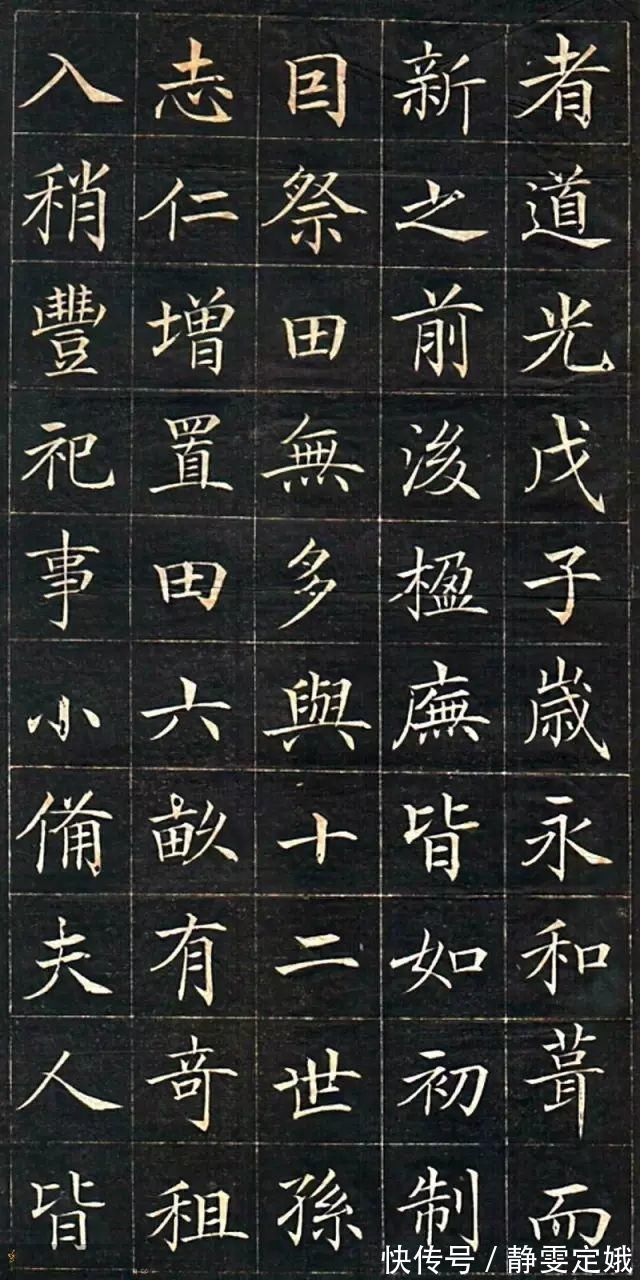 者道光戊子歳永和葺而
新之前後楹廡皆如初制
因祭田無多與十二世孫
志仁增置田六畝有奇租
入稍豐祀事小備夫人皆
快传号／静雯定娥